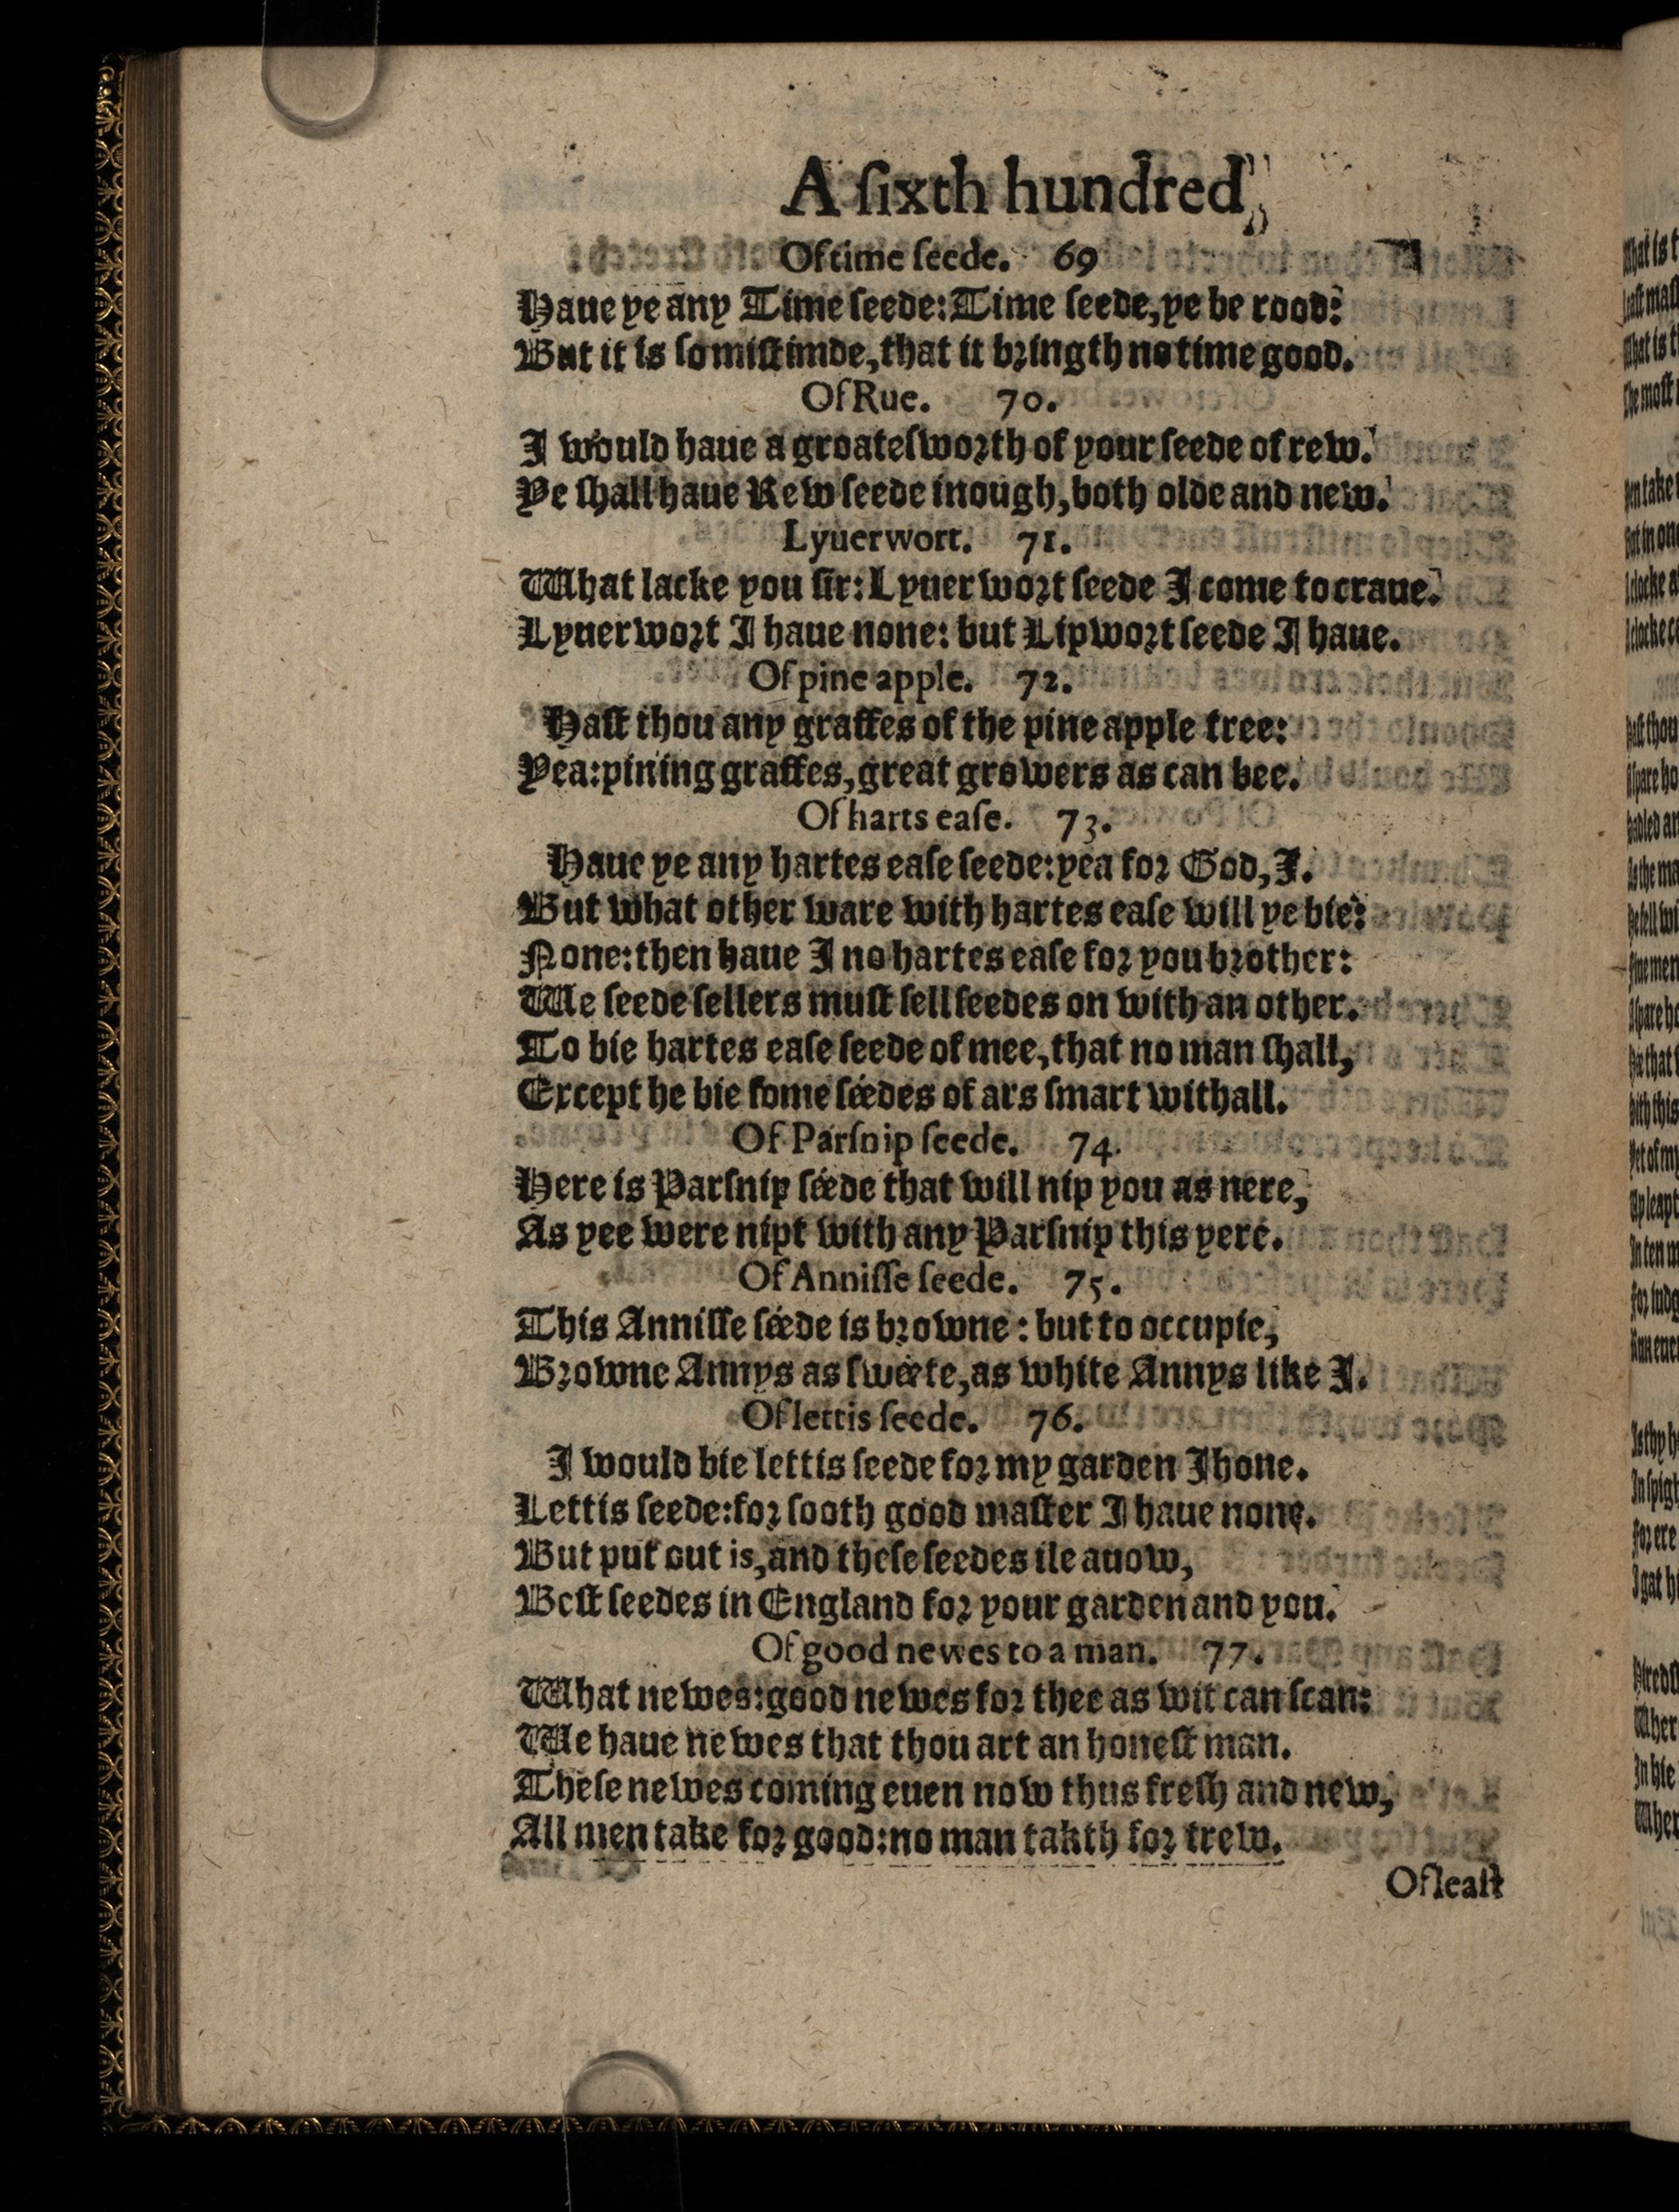 A ſixth hundred
Of time ſeede. 69
Haue ye any Time ſeede: Time ſeede, ye be rood:
But it is ſo miſtimde, that it bringth no time good.
Of Rue. 70.
I would haue a groateſworth of your ſeede of rew.
Ye ſhall haue Rew ſeede inough, both olde and new.
Lyuerwort. 71.
What lacke you ſir: Lyuerwort ſeede I come to craue.
Lyuerwort I haue none: but Lipwort ſeede I haue.
Of pine apple. 72.
Haſt thou any graffes of the pine apple tree:
Yea: pining graffes, great growers as can bee.
Of harts eaſe. 73.
Haue ye any hartes eaſe ſeede: yea for God, I.
But what other ware with hartes eaſe will ye bie:
None: then haue I no hartes eaſe for you brother:
We ſeede ſellers muſt ſell ſeedes on with an other.
To bie hartes eaſe ſeede of mee, that no man ſhall,
Except he bie ſome ſeedes of ars ſmart withall.
Of Parſnip ſeede. 74.
Here is Parſnip ſeede that will nip you as nere,
As yee were nipt with any Parſnip this yere.
Of Anniſſe ſeede. 75.
This Anniſſe ſeede is browne: but to occupie,
Browne Annys as ſweete, as white Annys like I.
Of lettis ſeede. 76.
I would bie lettis ſeede for my garden Ihone.
Lettis ſeede: for ſooth good maſter I haue none.
But put out is, and theſe ſeedes ile auow,
Beſt ſeedes in England for your garden and you.
Of good newes to a man. 77.
What newes: good newes for thee as wit can ſcan:
We haue newes that thou art an honeſt man.
Theſe newes coming euen now thus freſh and new,
All men take for good: no man takth for trew.
Of leaſt